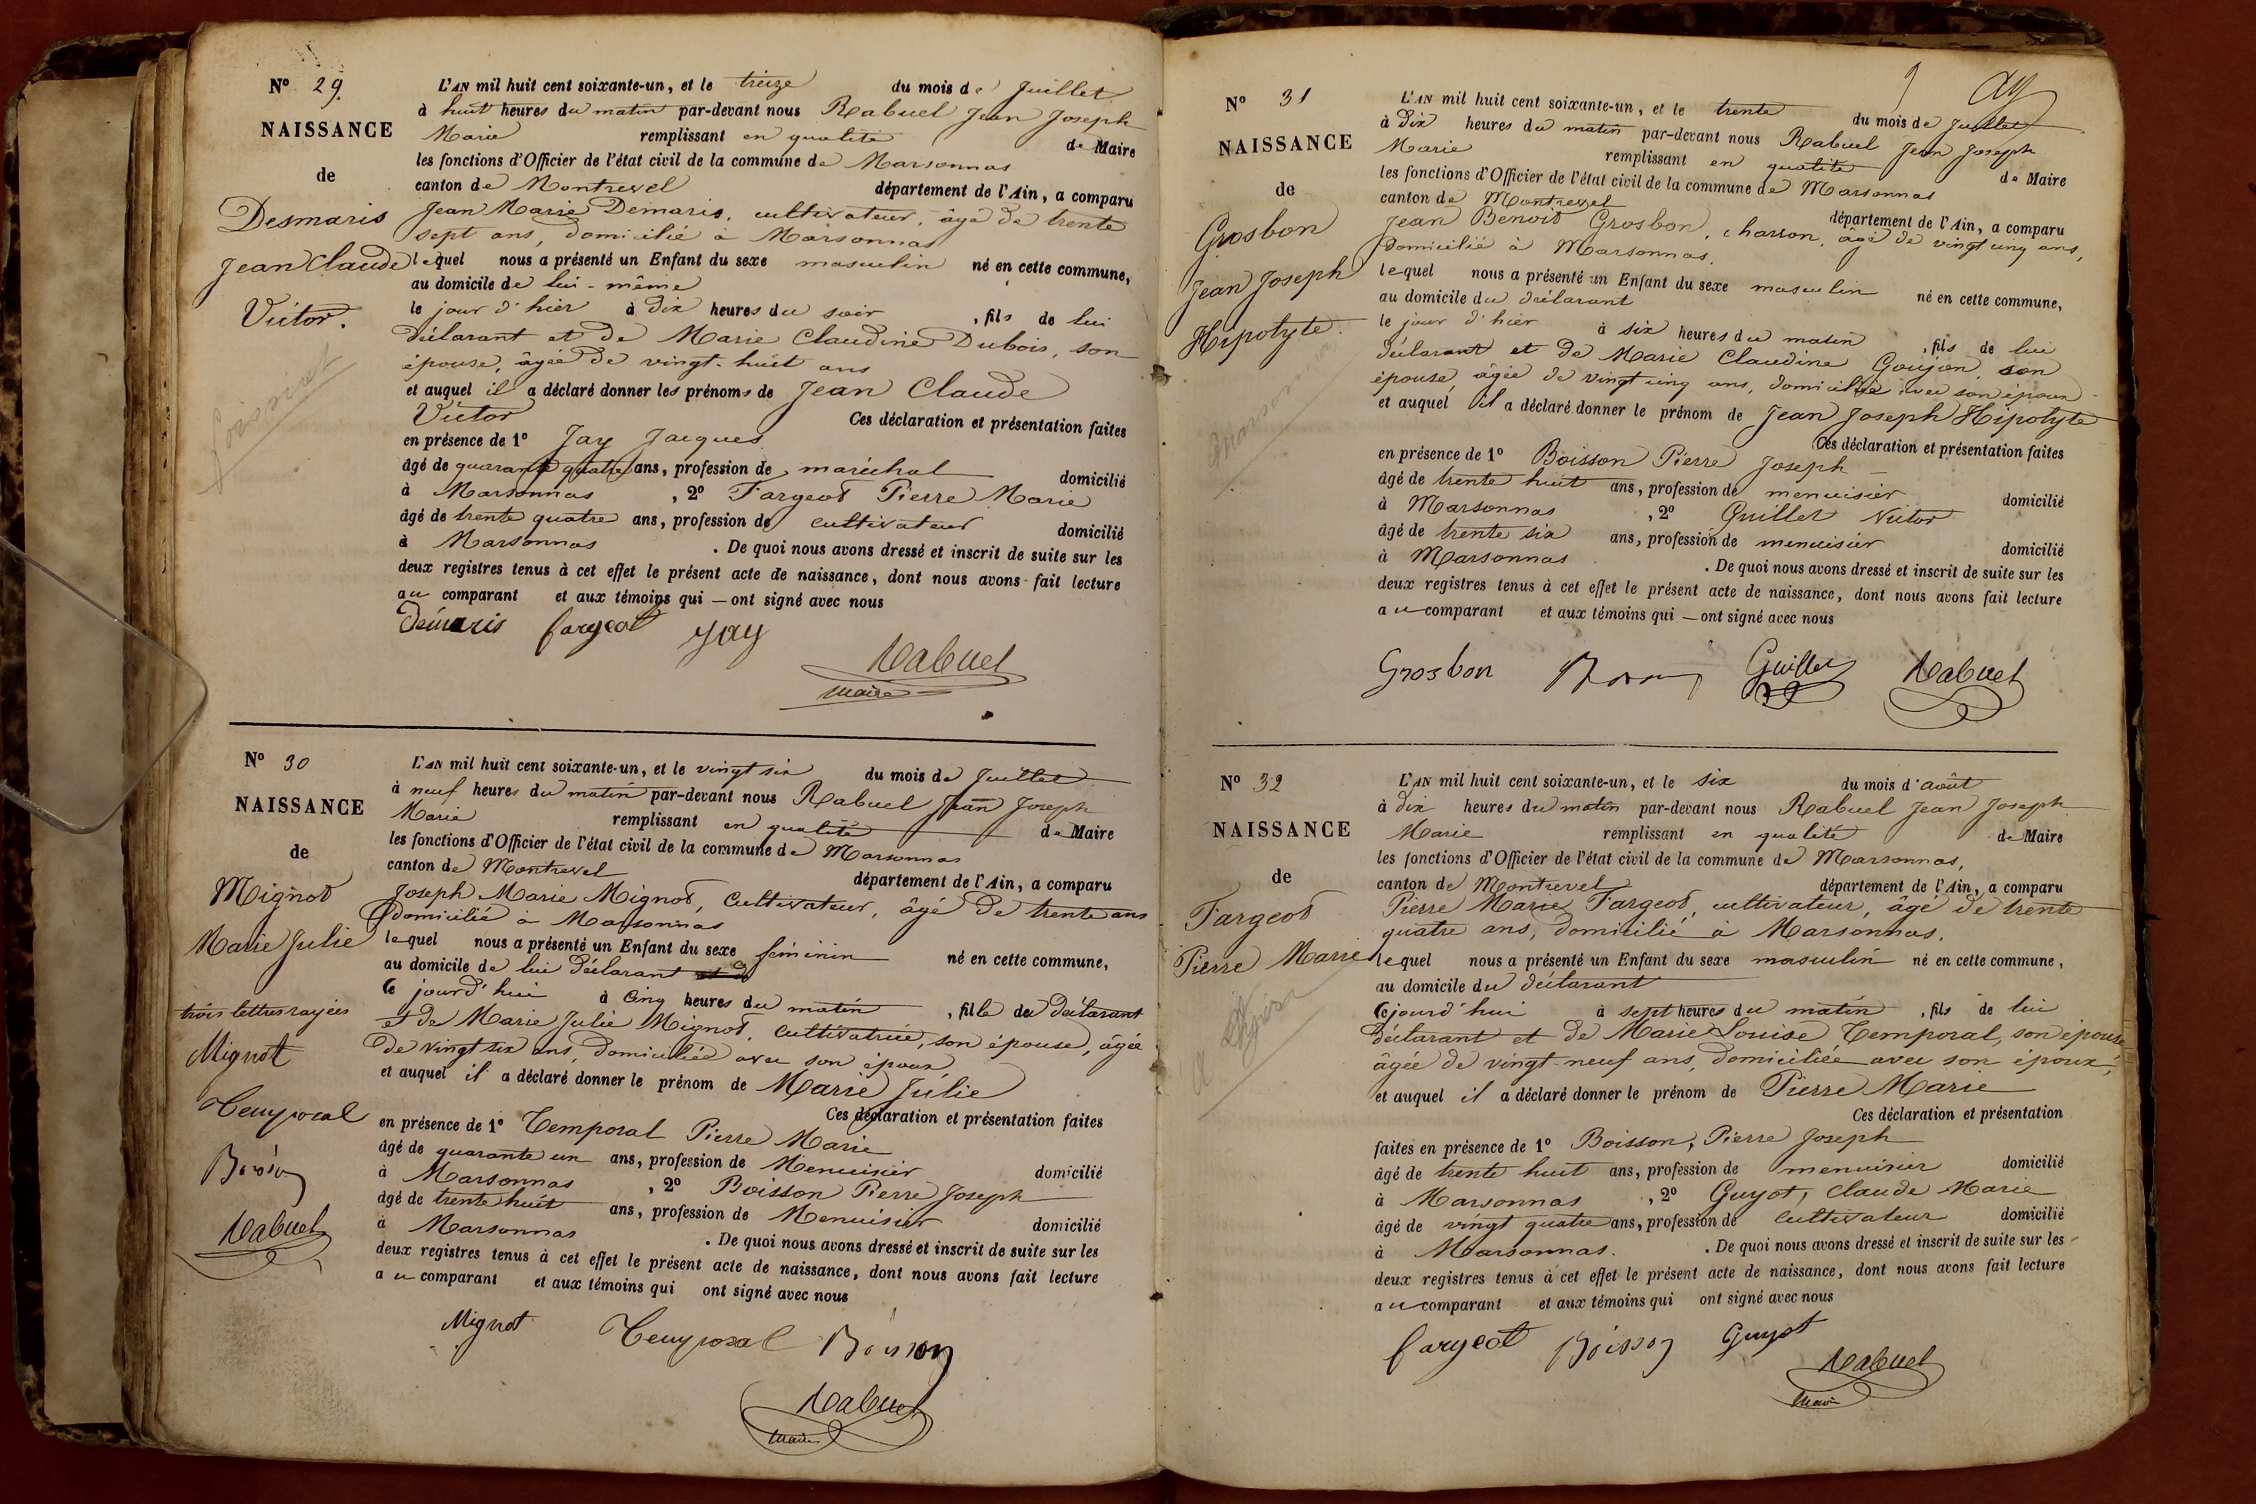 Nº 29
NAISSANCE
de
Desmaris
Jean Claude
Victor.
L'AN mil huit cent soixante-un, et le treize du mois de Juillet
à huit heures du matin par-devant nous Rabuel Jean Joseph
Marie remplissant en qualité de Maire
les fonctions d'Officier de l'état civil de la commune de Marsonnas
canton de Montrevel département de l'Ain, a comparu
Jean Marie Demaris, cultivateur, âgé de trente
sept ans, domicilié à Marsonnas
lequel nous a présenté un Enfant du sexe masculin né en cette commune,
au domicile de lui-même
le jour d'hier à dix heures du soir, fils de lui
déclarant et de Marie Claudine Dubois, son
épouse, âgée de vingt-huit ans
et auquel il a déclaré donner les prénoms de Jean Claude
Victor Ces déclaration et présentation faites
en présence de 1º Jay Jacques
âgé de quarante quatre ans, profession de maréchal domicilié
à Marsonnas, 2º Fargeot Pierre Marie
âgé de trente quatre ans, profession de cultivateur domicilié
à Marsonnas. De quoi nous avons dressé et inscrit de suite sur les
deux registres tenus à cet effet le présent acte de naissance, dont nous avons fait lecture
au comparant et aux témoins qui — ont signé avec nous
Démaris fargeot Jay
Rabuel
maire
Nº 30
NAISSANCE
de
Mignot
Marie Julie
trois lettres rayées
Mignot
Temporal
Boisson
Rabuel
L'AN mil huit cent soixante-un, et le vingt six du mois de Juillet
à neuf heures du matin par-devant nous Rabuel Jean Joseph
Marie remplissant en qualité de Maire
les fonctions d'Officier de l'état civil de la commune de Marsonnas
canton de Montrevel département de l'Ain, a comparu
Joseph Marie Mignot, Cultivateur, âgé de trente ans
domicilié à Marsonnas
lequel nous a présenté un Enfant du sexe féminin né en cette commune,
au domicile de lui déclarant
Ce jourd'hui à Cinq heures du matin, fille du déclarant
et de Marie Julie Mignot, Cultivatrice, son épouse, âgée
de vingt six ans, domiciliée avec son époux
et auquel il a déclaré donner le prénom de Marie Julie
Ces déclaration et présentation faites
en présence de 1º Temporal Pierre Marie
âgé de quarante un ans, profession de Menuisier domicilié
à Marsonnas, 2º Boisson Pierre Joseph
âgé de trente huit ans, profession de Menuisier domicilié
à Marsonnas. De quoi nous avons dressé et inscrit de suite sur les
deux registres tenus à cet effet le présent acte de naissance, dont nous avons fait lecture
au comparant et aux témoins qui ont signé avec nous
Mignot Temporal Boisson
Rabuel
maire
9
Nº 31
NAISSANCE
de
Grosbon
Jean Joseph
Hipolyte.
L'AN mil huit cent soixante-un, et le trente du mois de Juillet
à Dix heures du matin par-devant nous Rabuel Jean Joseph
Marie remplissant en qualité de Maire
les fonctions d'Officier de l'état civil de la commune de Marsonnas
canton de Montrevel département de l'Ain, a comparu
Jean Benoit Grosbon, charron, âgé de vingt cinq ans,
domicilié à Marsonnas.
lequel nous a présenté un Enfant du sexe masculin né en cette commune,
au domicile du déclarant
le jour d'hier à six heures du matin, fils de lui
déclarant et de Marie Claudine Goujon, son
épouse, âgée de vingt cinq ans, domiciliée avec son époux
et auquel il a déclaré donner le prénom de Jean Joseph Hipolyte
Ces déclaration et présentation faites
en présence de 1º Boisson Pierre Joseph
âgé de trente huit ans, profession de menuisier domicilié
à Marsonnas, 2º Guillet Victor
âgé de trente six ans, profession de menuisier domicilié
à Marsonnas. De quoi nous avons dressé et inscrit de suite sur les
deux registres tenus à cet effet le présent acte de naissance, dont nous avons fait lecture
au comparant et aux témoins qui — ont signé avec nous
Grosbon Guillet Rabuel
Nº 32
NAISSANCE
de
Fargeot
Pierre Marie
L'AN mil huit cent soixante-un, et le six du mois d'août
à dix heures du matin par-devant nous Rabuel Jean Joseph
Marie remplissant en qualité de Maire
les fonctions d'Officier de l'état civil de la commune de Marsonnas,
canton de Montrevel département de l'Ain, a comparu
Pierre Marie Fargeot, cultivateur, âgé de trente
quatre ans, domicilié à Marsonnas.
lequel nous a présenté un Enfant du sexe masculin né en cette commune,
au domicile du déclarant
Cejourd'hui à sept heures du matin, fils de lui
déclarant et de Marie Louise Temporal, son épouse
âgée de vingt-neuf ans, domiciliée avec son époux,
et auquel il a déclaré donner le prénom de Pierre Marie
Ces déclaration et présentation
faites en présence de 1º Boisson, Pierre Joseph
âgé de trente huit ans, profession de menuisier domicilié
à Marsonnas, 2º Guyot, Claude Marie
âgé de vingt quatre ans, profession de cultivateur domicilié
à Marsonnas. De quoi nous avons dressé et inscrit de suite sur les
deux registres tenus à cet effet le présent acte de naissance, dont nous avons fait lecture
au comparant et aux témoins qui ont signé avec nous
fargeot Boisson Guyot
Rabuel
maire